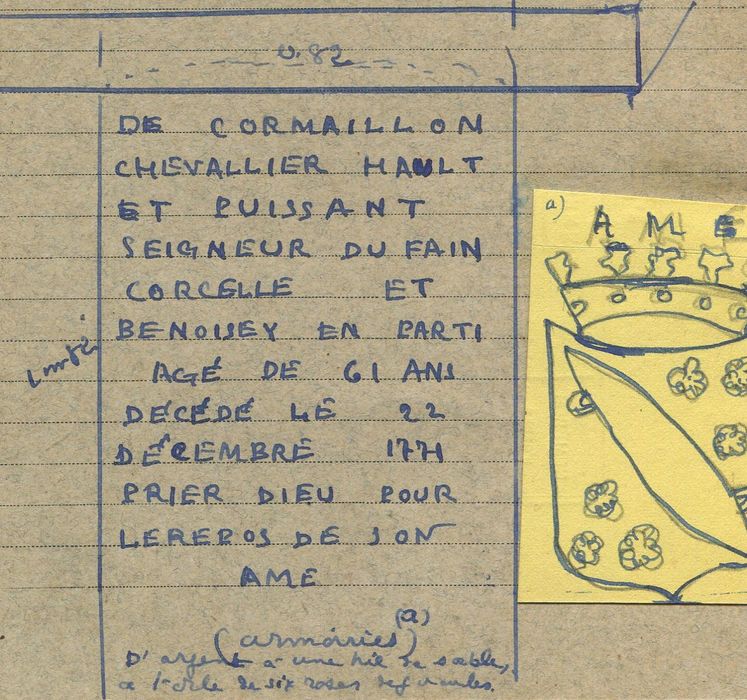 0.82
DE CORMAILLON
CHEVALLIER HAULT
ET PUISSANT
SEIGNEUR DU FAIN
CORCELLE ET
BENOISEY EN PARTI
AGÉ DE 61 ANS
DÉCÉDÉ LE 22
DÉCEMBRE 1771
PRIER DIEU POUR
LEREPOS DE SON
AME
(a)
(armoiries)
D'argent à une de sable,
a l'orle de six roses de gueules.
a)
AME